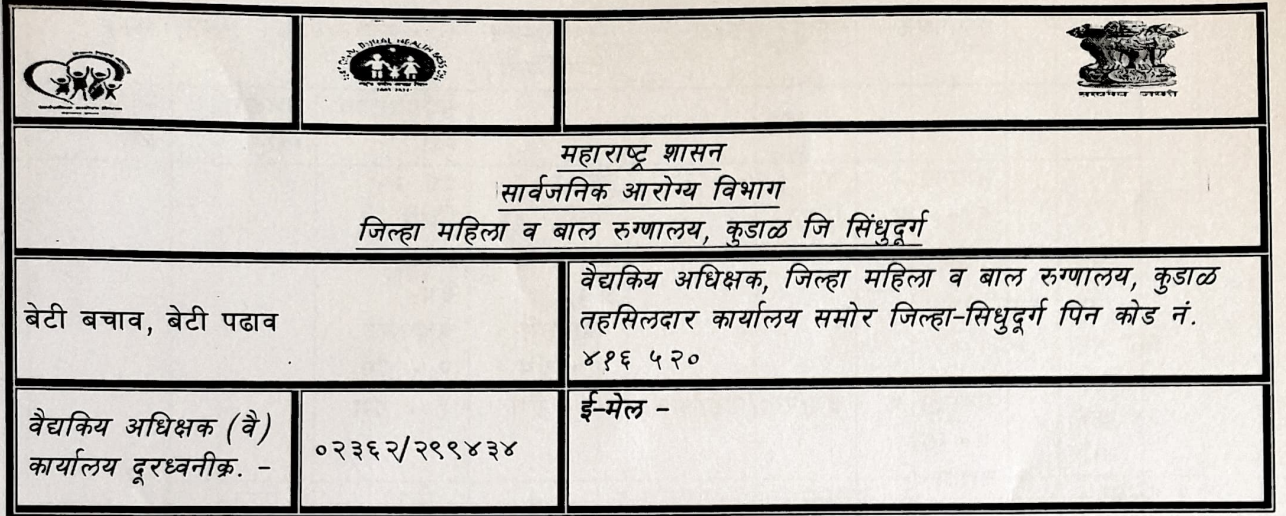 महाराष्ट्र शासन
सार्वजनिक आरोग्य विभाग
जिल्हा महिला व बाल रुग्णालय, कुडाळ जि सिंधुदूर्ग
बेटी बचाव, बेटी पढाव
वैद्यकिय अधिक्षक, जिल्हा महिला व बाल रुग्णालय, कुडाळ
तहसिलदार कार्यालय समोर जिल्हा-सिधुदूर्ग पिन कोड नं.
४१६ ५२०
वैद्यकिय अधिक्षक (वै)
कार्यालय दूरध्वनीक्र. -
०२३६२/२९९४३४
ई-मेल -